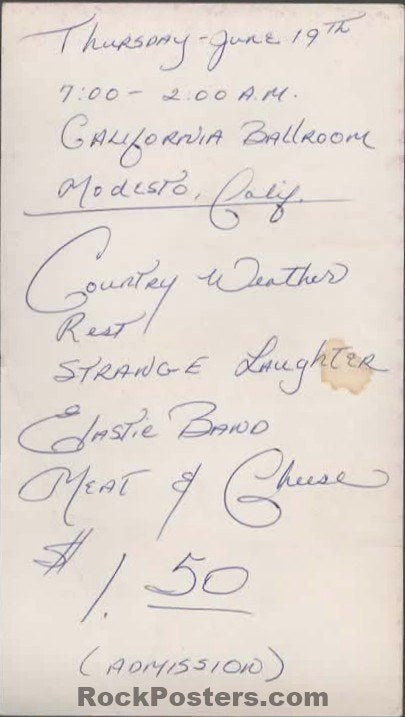 Thursday - June 19TH
7:00 - 2:00 A.M.
California Ballroom
Modesto, Calif.
Country Weather
Rest
STRANGE Laughter
Elastic Band
Meat & Cheese
$1.50
(ADMISSION)
RockPosters.com